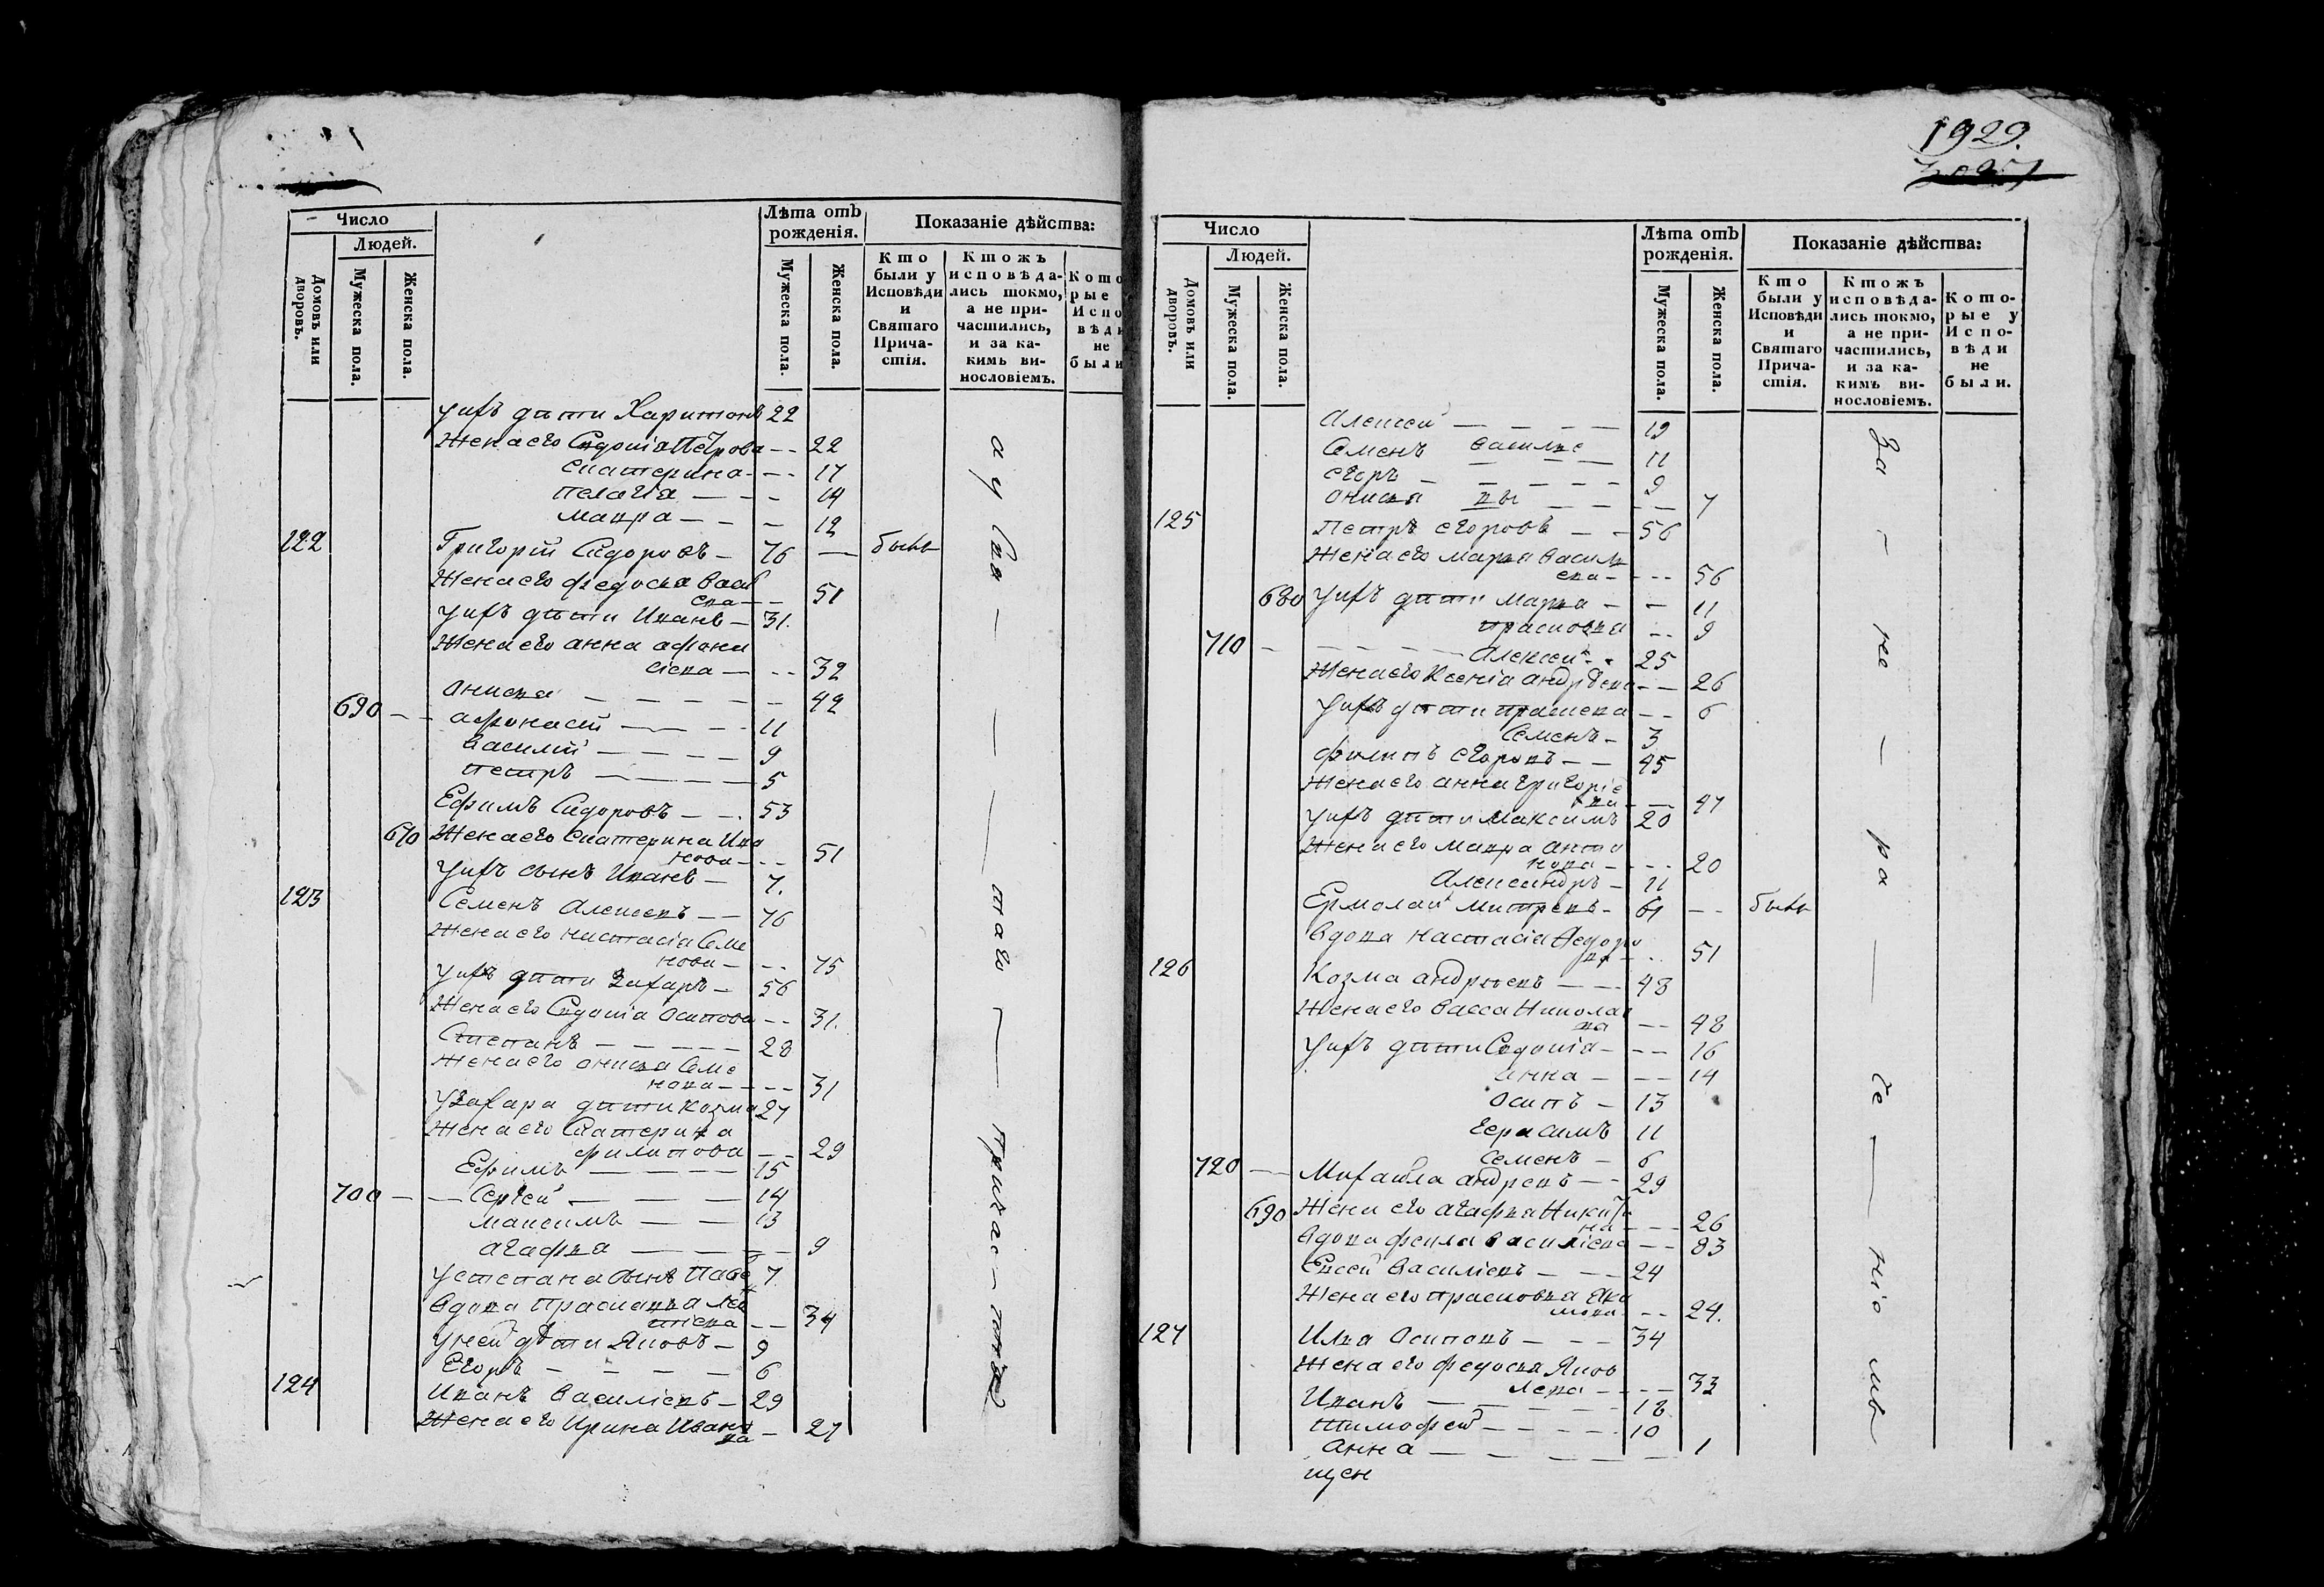 Число
Людей.
Домовъ или дворовъ.
Мужеска пола.
Женска пола.
Лѣта отъ рожденія.
Мужеска пола.
Женска пола.
Показаніе дѣйства:
Кто были у Исповѣди и Святаго Прича-стія.
Ктожъ исповѣда-лись токмо, а не при-частились, и за ка-кимъ ви-нословіемъ.
Кото рые Испо вѣди не были
уихъ дѣти Харитонъ 22
Жена его Ѳедосіа Петрова — 22
Екатерина — 17
Пелагіа — 14
Мавра — 12
122 Григорій Сидоровъ — 76 — быль
Жена его Федосья Васи
ева — 51
уихъ дѣти Иванъ — 31.
Жена его Анна Афона
сіева — 32
Анисья — 42
690 — Афонасій — 11
Василій — 9
Петръ — 5
Ефимъ Сидоровъ — 53
670 Жена его Екатерина Ива
нова — 51
Уихъ сынъ Иванъ — 7.
123 Семенъ Алексеевъ — 76
Жена его Настасіа Семе
нова — 75
Уихъ дѣти Захаръ — 56
Жена его Осипова — 31.
Степанъ — 28
Жена его Анисья Семе
нова — 31
У Захара дѣти Козма 27
Жена его Екатерина
Филипова — 29
Ефимъ — 15
700 — Сергей — 14
Максимъ — 13
Агафья — 9
У Степана сынъ Паве 7.
Вдова Прасковья Лео
нтіева — 34
У неи дѣти Яковъ — 9
Егоръ — 6
124 Иванъ Василіевъ — 29
Жена его Ирина Ивано
ва — 27
1929.
Число
Людей.
Домовъ или дворовъ.
Мужеска пола.
Женска пола.
Лѣта отъ рожденія.
Мужеска пола.
Женска пола.
Показаніе дѣйства:
Кто были у Исповѣди и Святаго Прича-стія.
Ктожъ исповѣда-лись токмо, а не при-частились, и за ка-кимъ ви-нословіемъ.
Кото-рые у Испо-вѣди не были.
Алексей — 19
Семенъ Василье 11
Егоръ — 9
Анисья вы — 7
125 Петръ Егоровъ — 56
Жена его Марья Василь
ева — 56
680 Уихъ дѣти Марья — 11
Прасковья — 9
710 — Алексей — 25
Жена его Ксеніа Андрѣева — 26
Уихъ дѣти — 6
Семенъ — 3
Филипъ Егоровъ — 45
Жена его Анна Григоріе
ва — 47
Уихъ дѣти Максимъ 20
Жена его Мавра Анто
нова — 20
Александръ — 11
Ермолай — 61 — быль
Вдова Настасіа Федоро
ва — 51
126 Козма Андреевъ — 48
Жена его Васса Никола
ва — 48
Уихъ дѣти — 16
Анна — 14
Осипъ — 13
Герасимъ 11
Семенъ — 6
720 — Михайла Андреевъ — 29
690 Жена его Агафья Никити
на — 26
Вдова Фекла Василіева — 83
Евсей Василіевъ — 24
Жена его Прасковья Яко
— 24.
127 Илья Осиповъ — 34
Жена его Федосья Яков
лева — 33
Иванъ — 18
Тимофей — 10
Анна — 1
щен
а у Свя — таго — причас — тонъ
за — не — ра — че — ніемъ